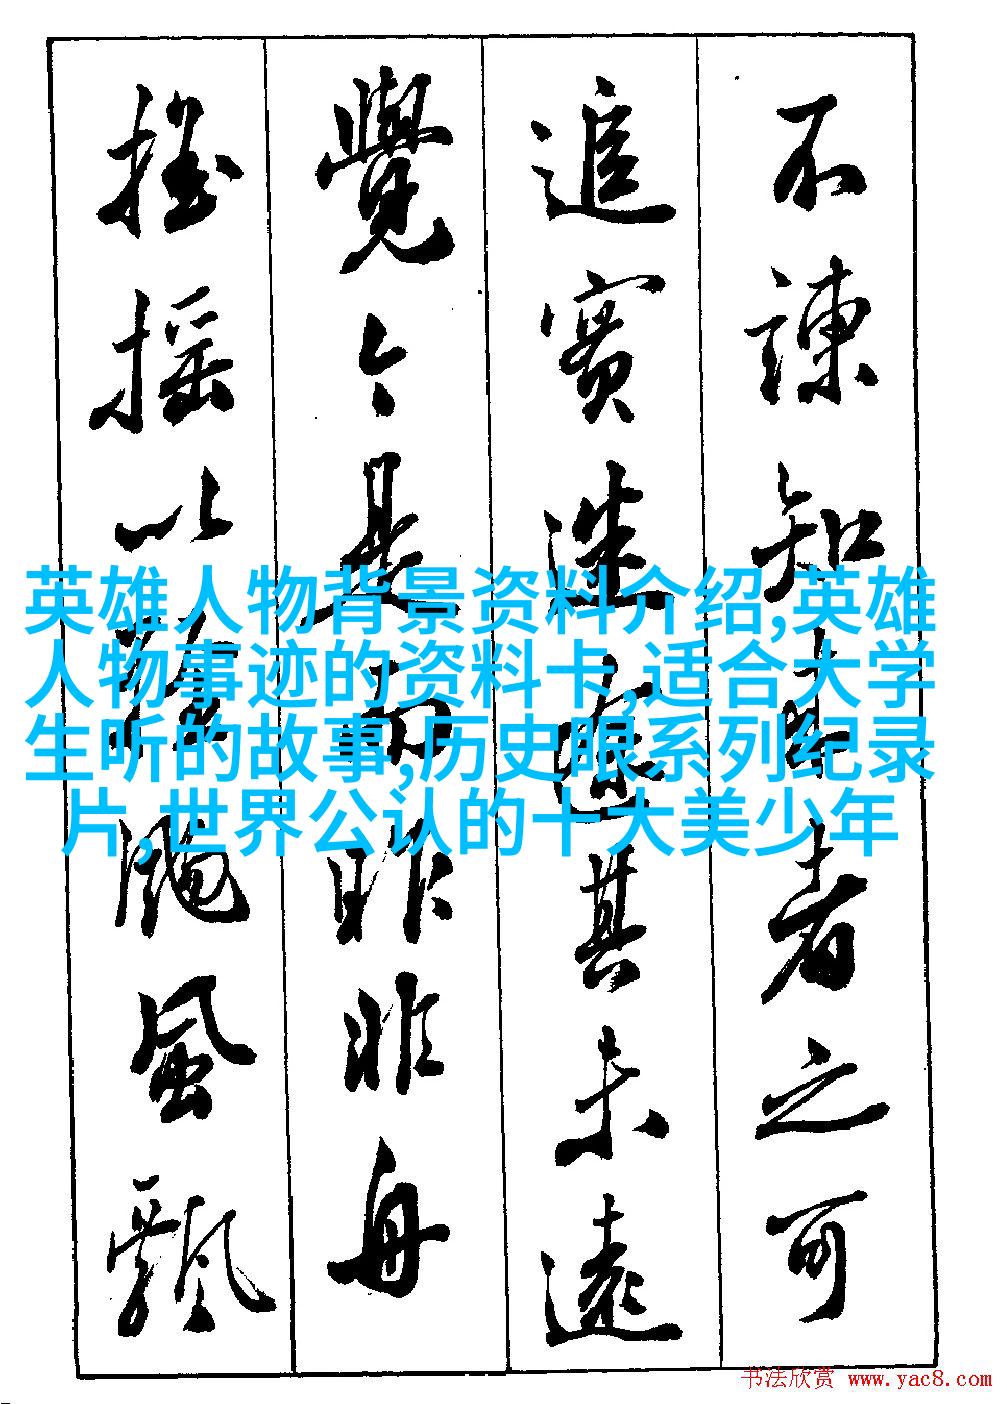 不諫知来者之可
追實迷途其未遠
覺今是而昨非舟
摇摇以輕颺風飄
英雄人物背景资料介绍,英雄
人物事迹的资料卡,适合大学
生听的故事,历史眼系列纪录
片,世界公认的十大美少年
书法欣赏 www.yac8.com